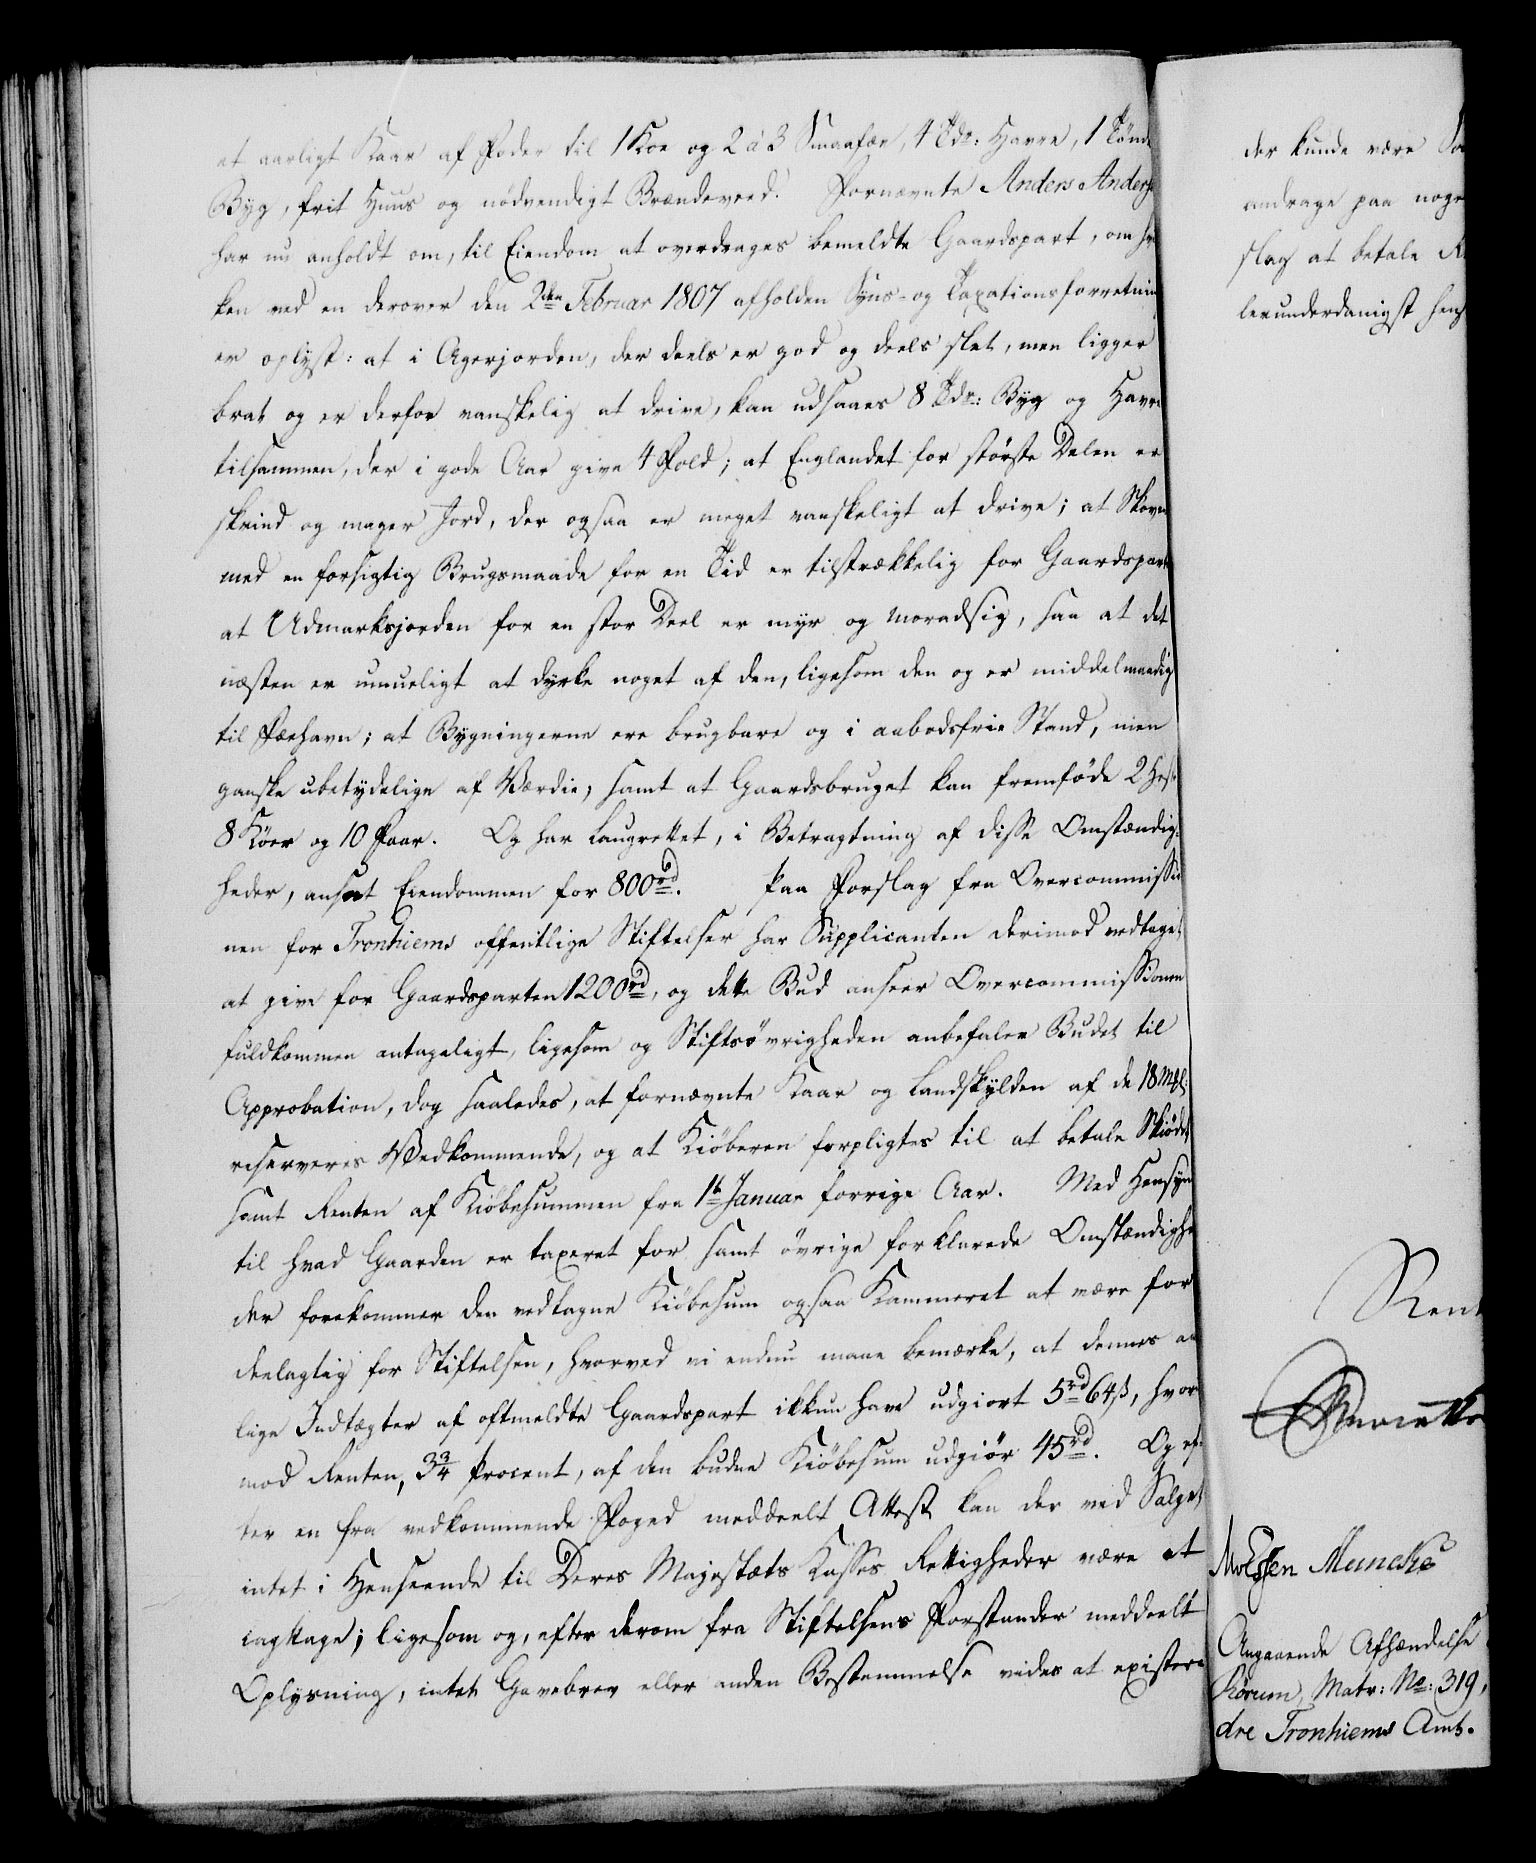 et aarligt Kaar af Foder til 1 Koe og 2 à 3 Smaafæe, 4 Tdr: Havre, 1 Tönde
Byg, frit Huus og nödvendigt Brændeveed. Fornævnte Anders Anders
har nu anholdt om, til Eiendom at overdrages bemeldte Gaardspart, om hvil
ken ved en derover den 2den Februar 1807 afholden Syns- og Taxationsforretning
er oplyst: at i Agerjorden, der deels er god og deels slet, men ligger
brat og er derfor vanskelig at drive, kan udsaaes 8 Tdr: Byg og Havre
tilsammen, der i gode Aar give 4 Fold; at Englandet for störste Delen er
skrind og mager Jord, der ogsaa er meget vanskeligt at drive; at Skoven
med en forsigtig Brugsmaade for en Tid er tilstrækkelig for Gaardsparten
at Udmarksjorden for en stor Deel er myr og moradsig, saa at det
næsten er umueligt at dyrke noget af den, ligesom den og er middelmaadig
til Fæehavn; at Bygningerne ere brugbare og i aabodsfrie Stand, men
ganske ubetydelige af Værdie, samt at Gaardsbruget kan fremföde 2 Heste
8 Köer og 10 Faar. Og har Laugrettet, i Betragtning af disse Omstændig-
heder, ansat Eiendommen for 800 rd. Paa Forslag fra Overcommissio
nen for Tronhiems offentlige Stiftelser har Supplicanten derimod vedtaget
at give for Gaardsparten 1200 rd, og dette Bud anseer Overcommissionen
fuldkommen antageligt, ligesom og Stiftsövrigheden anbefaler Budet til
Approbation, dog saaledes, at fornævnte Kaar og Landskylden af de 18 Mkl:
reserveres Vedkommende, og at Kiöberen forpligtes til at betale Skiödet
samt Renten af Kiöbesummen fra 1te Januar forrige Aar. Med Hensyn
til hvad Gaarden er taxeret for samt övrige forklarede Omstændighe
der forekommer den vedtagne Kiöbesum ogsaa Kammeret at være for
deelagtig for Stiftelsen, hvorved vi endnu maae bemærke, at dennes aar
lige Indtægter af oftmeldte Gaardspart ikkun have udgiort 5 rd 64 ß, hvor
mod Renten, 3 3/4 Procent, af den budne Kiöbesum udgiör 45 rd. Og ef-
ter en fra vedkommende Foged meddeelt Attest kan der ved Salget
intet i Henseende til Deres Majestæts Kasses Rettigheder være at
iagttage; ligesom og, efter derom fra Stiftelsens Forstander meddeelt
Oplysning, intet Gavebrev eller anden Bestemmelse vides at existere
der kunde være
andrage paa noge
slag at betale
lerunderdanigst hens
Rent
Mössen Muncks
Angaaende Afhændelse
Rörum, Matr: No: 319,
dre Tronhiems Amt.